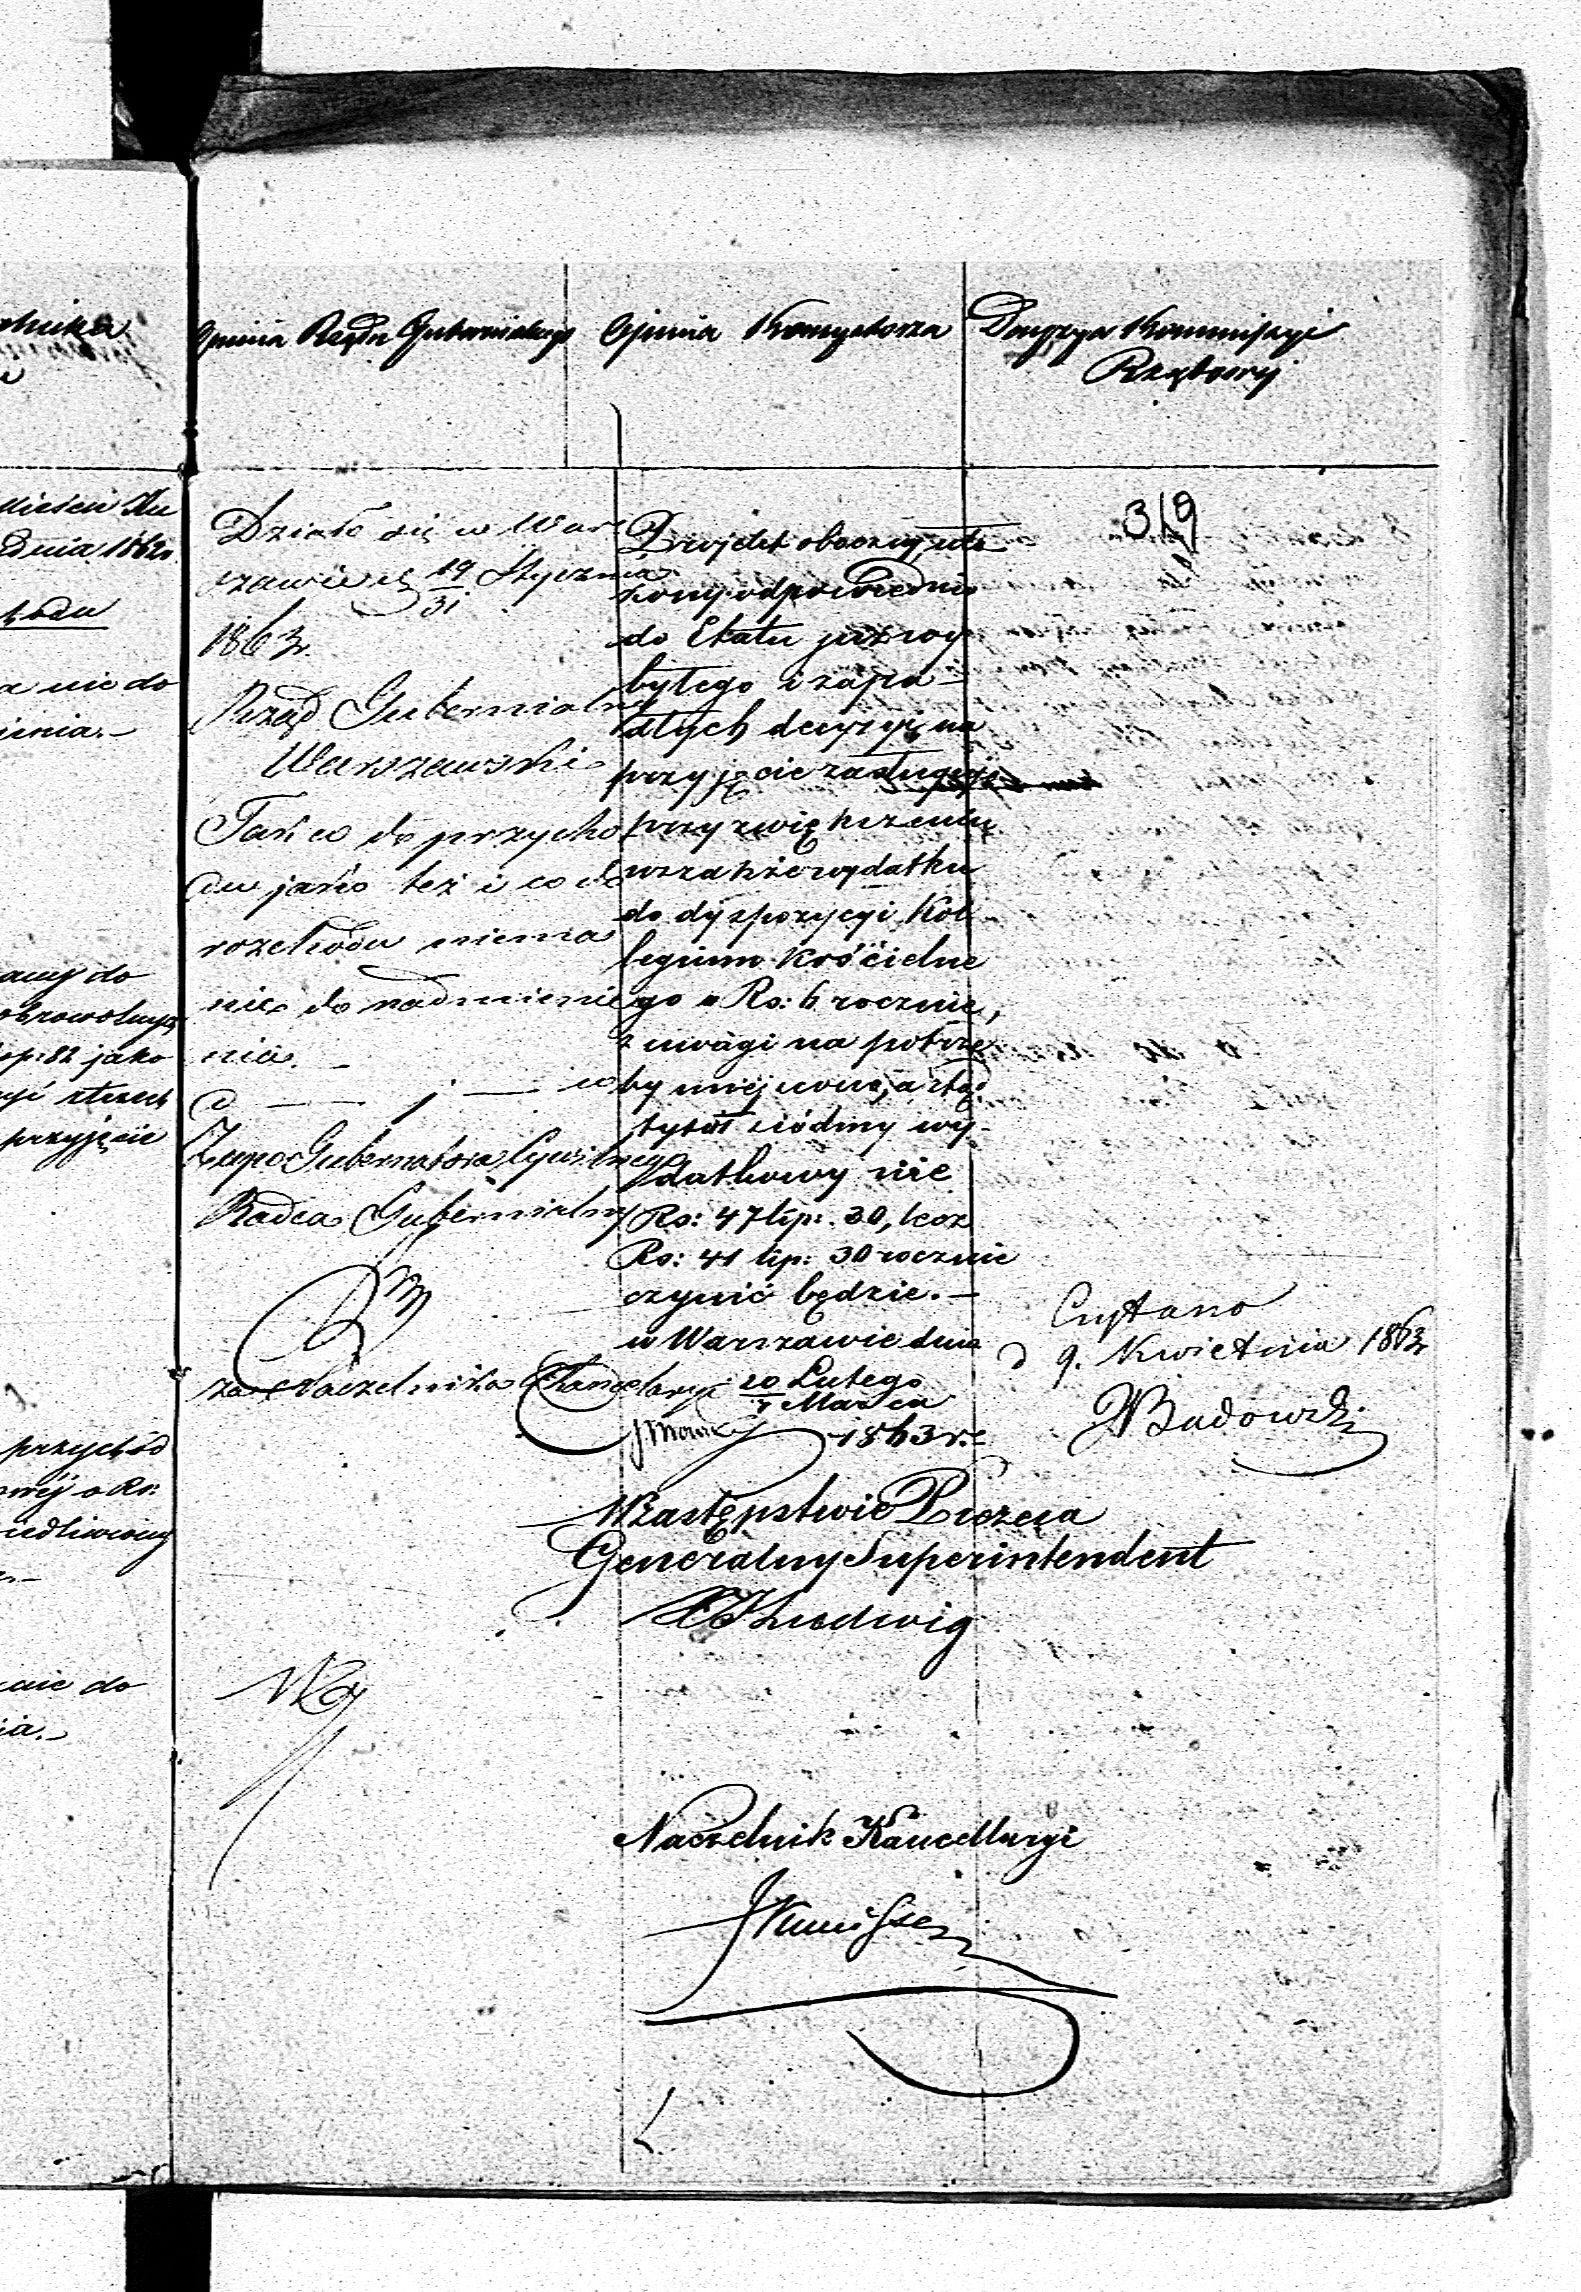 Opinia Rządu Gubernialnego
Opinia Konsystorza
Decyzya Kommissyi
Rządowej
Działo się w War
szawie d. 19/31 Stycznia
1863 r.
Rząd Gubernialny
Warszawski
Tak co do przycho
du jako też i co do
rozchodu niema
nic do nadmienie
nia.
Gubernatora Cywilnego
Radca Gubernialny
za Naczelnika Kancelaryi
Projekt obecny, uło
żony odpowiednio
do Etatu już wy
byłego i zapa-
dłych decyzyi, na
przyjęcie zasługuje
przy zwiększeniu
wszakże wydatku
do dyspozycyi Kol
legium Kościelne
go o Rs: 6 rocznie,
z uwagi na potrze
by miejscowe, a ztąd
tytuł siódmy wy-
datkowy nie
Rs: 47 kp: 30, lecz
Rs: 41 kp: 30 rocznie
czynić będzie.—
w Warszawie dnia
20 Lutego
Marca
1863 r.
W Zastępstwie Prezesa
Generalny Superintendent
Ludwig
Naczelnik Kancellaryi
319
Czytano
d 9. Kwietnia 1863
Badowski
dnia 1862
a nie do
nienia.—
jako
przyjęcie
przychód
nie do